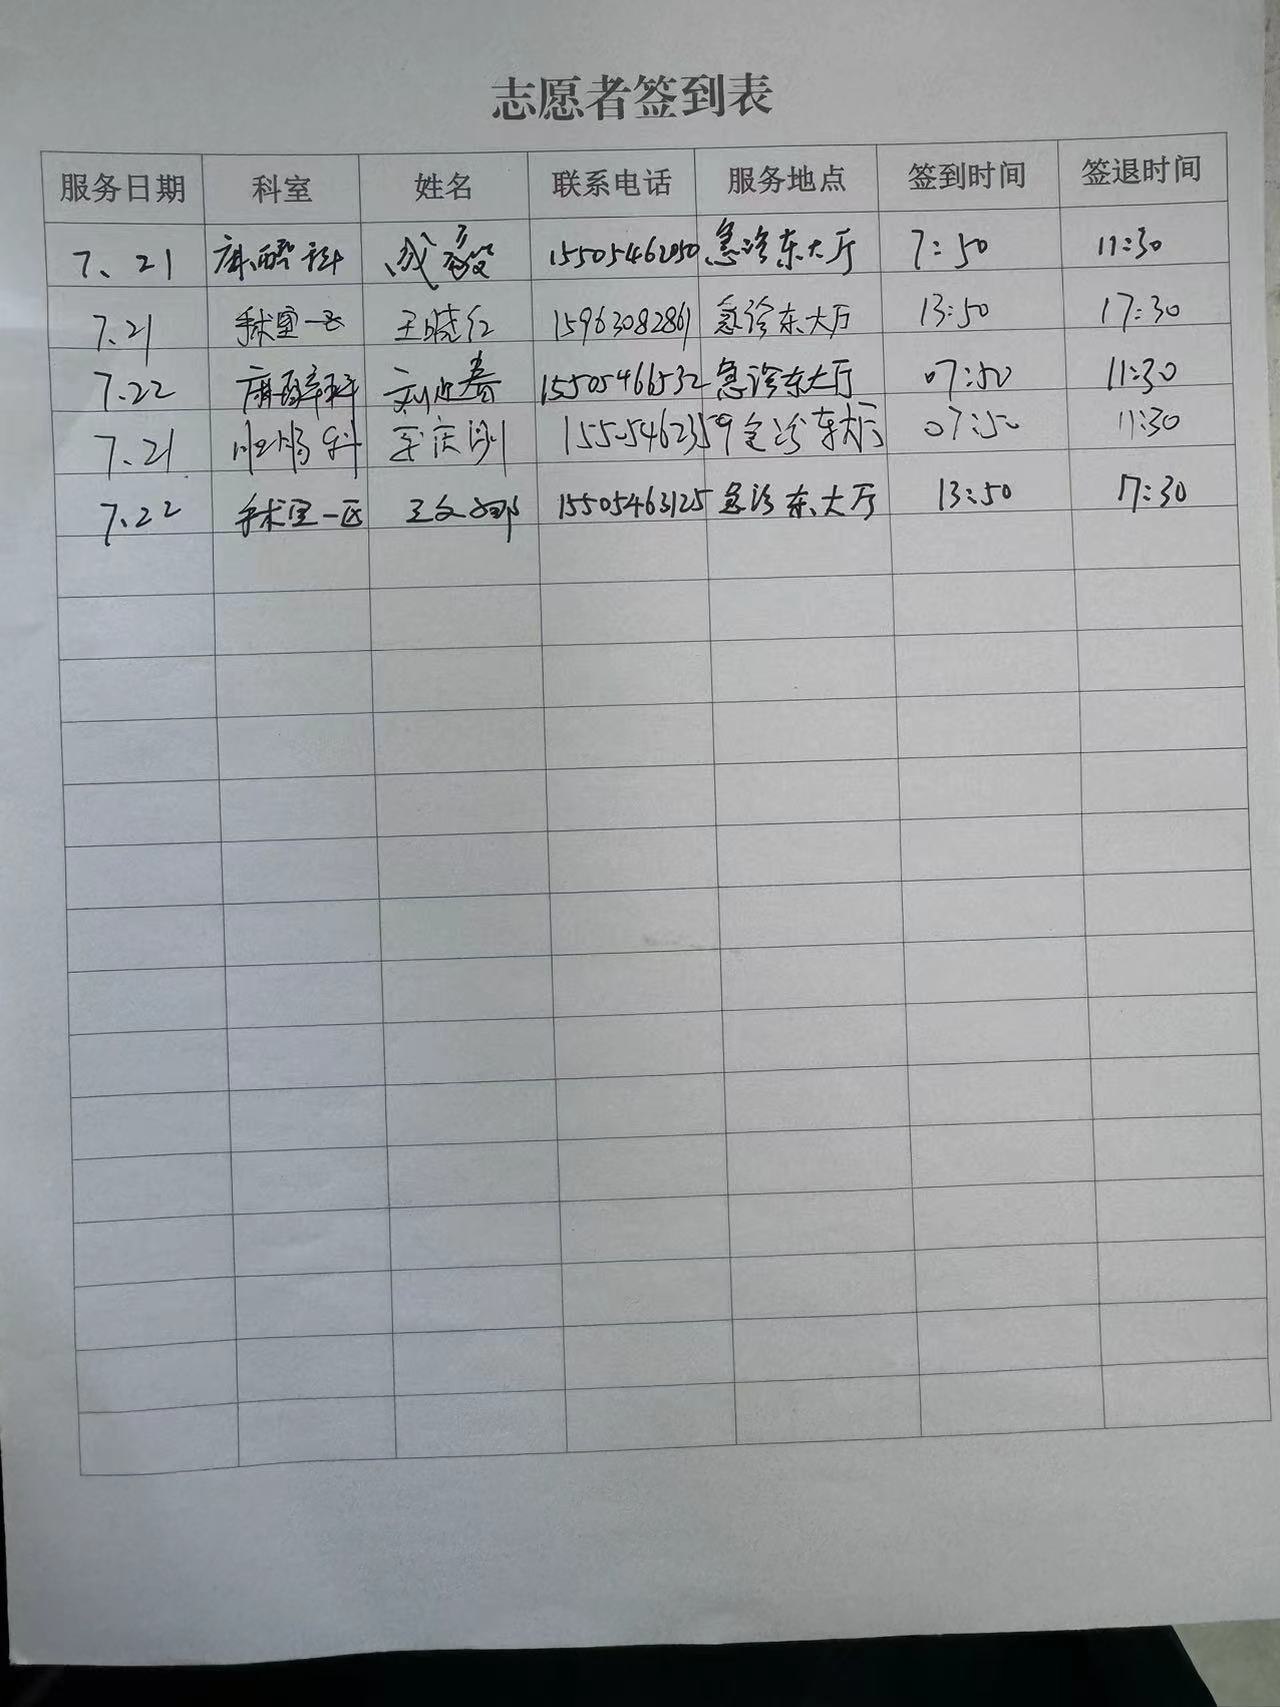 志愿者签到表
服务日期 科室 姓名 联系电话 服务地点 签到时间 签退时间
7、21 麻醉科 成 15505462050 急诊东大厅 7:50 11:30
7.21 手术室一区 王晓红 15963082861 急诊东大厅 13:50 17:30
7.22 麻醉科 刘迎春 15505466532 急诊东大厅 07:50 11:30
7、21 肛肠科 15505462359 急诊东大厅 07:50 11:30
7.22 手术室一区 王文娜 15505463125 急诊东大厅 13:50 17:30